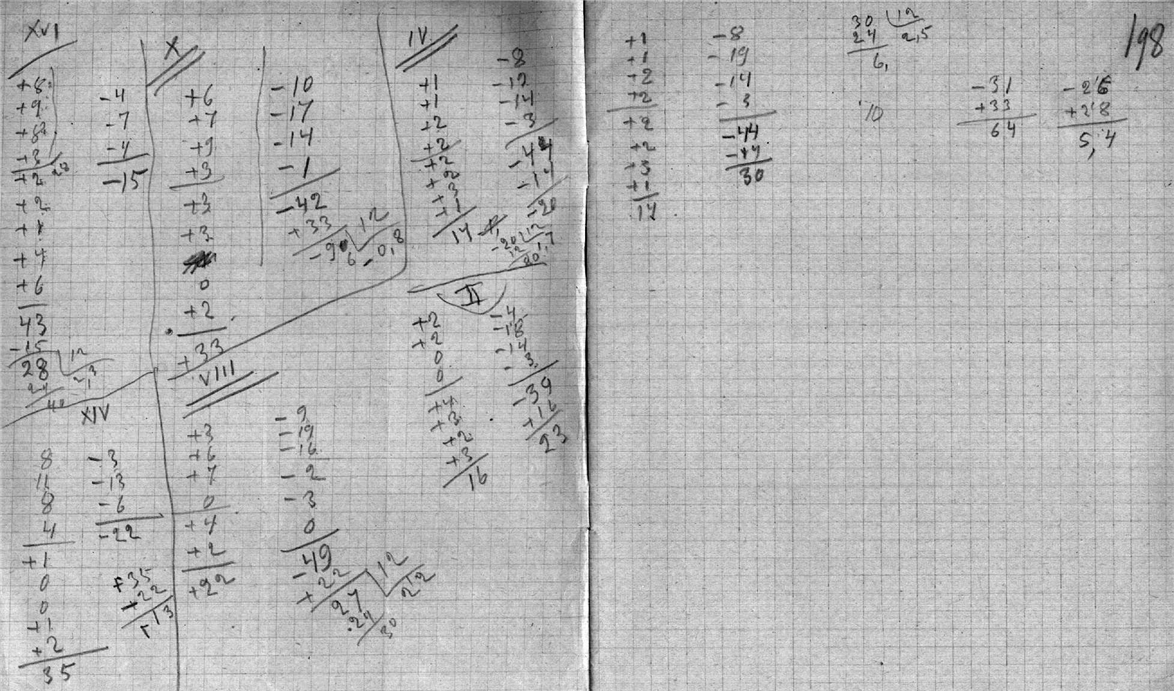 XVI
+8
+9
+8
+3 28
+2
+2
+1
+4
+6
43
-15
28 12
24 2,3
40
-4
-7
-4
-15
X
+6
+7
+9
+3
+3
+3
0
+2
+33
-10
-17
-14
-1
-42
+33
-9 12
-0,8
IV
+1
+1
+2
+2
+2
+2
+3
+1
14
-8
-19
-14
-3
-44
-14
-20
-20 12
12 1,7
II
+2
+2
0
0
+4
+3
+2
+3
16
-4
-18
-14
-3
-39
+16
23
XIV
8
11
8
4
+1
0
0
+1
+2
35
-3
-13
-6
-22
+35
+22
13
VIII
+3
+6
+7
0
+4
+2
+22
-9
-19
-16
-2
-3
0
-49
+22
27 12
24 22
30
198
+1
+1
+2
+2
+2
+2
+3
+1
14
-8
-19
-14
-3
-44
-14
30
30 12
24 2,5
6,
-31
+33
64
-26
+28
5,4